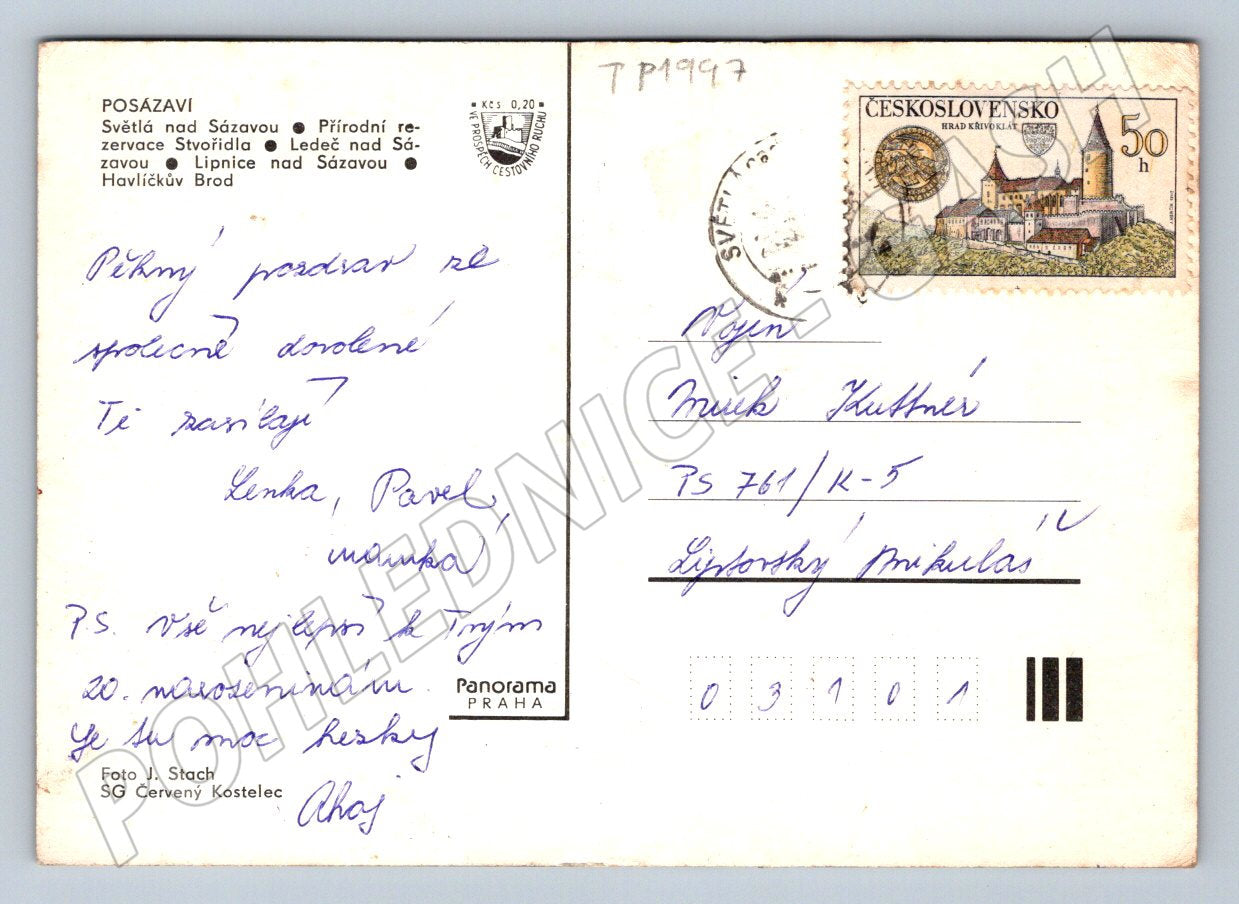 POSÁZAVÍ
Světlá nad Sázavou ● Přírodní re-
zervace Stvořidla ● Ledeč nad Sá-
zavou ● Lipnice nad Sázavou ●
Havlíčkův Brod
Kčs 0,20
VE PROSPĚCH CESTOVNÍHO RUCHU
Pěkný pozdrav ze
společné dovolené
Ti zasílají
Lenka, Pavel,
mamka
P.S. Vše nejlepší k Tvým
20. narozeninám.
Je tu moc hezky
Ahoj
Foto J. Stach
SG Červený Kostelec
Panorama
PRAHA
TP1997
ČESKOSLOVENSKO
HRAD KŘIVOKLÁT
50
h
SVĚTLÁ
Vojín
Mirek Kuttnér
PS 761/K-5
Liptovský Mikuláš
03101
POHLEDNICE - SASH